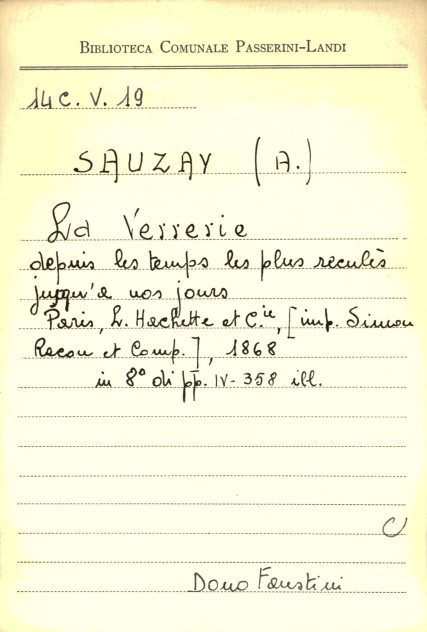 BIBLIOTECA COMUNALE PASSERINI-LANDI
14 C. V. 19
SAUZAY (A.)
La Verrerie
depuis les temps les plus reculés
jusqu'a nos jours
Paris, L. Hachette et C.ie, [imp. Simon
Racon et Comp.], 1868
in 8° di pp. IV-358 ill.
Dono Faustini